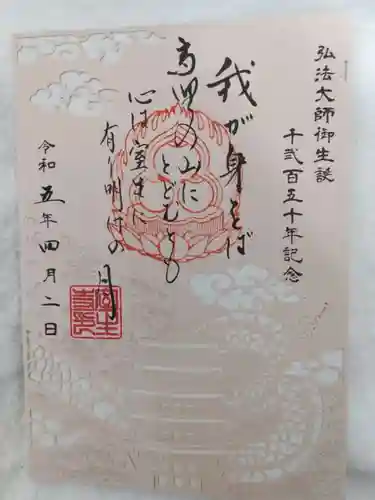 弘法大師御生誕
千弐百五十年記念
我が身をば
高野の山に
とどむとも
心は室生に
有り明けの
月
令和五年四月二日